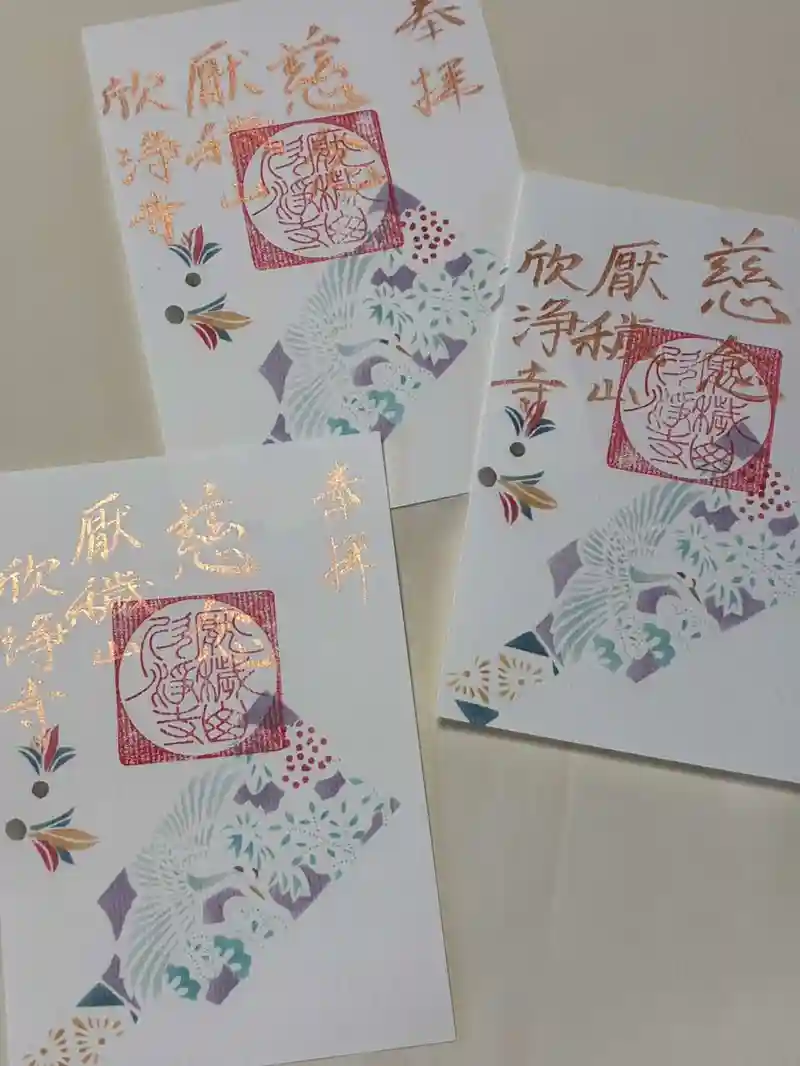 奉拝
慈
厭穢山
欣浄寺
慈念
厭穢山
欣浄寺
奉拝
慈
厭穢山
欣浄寺